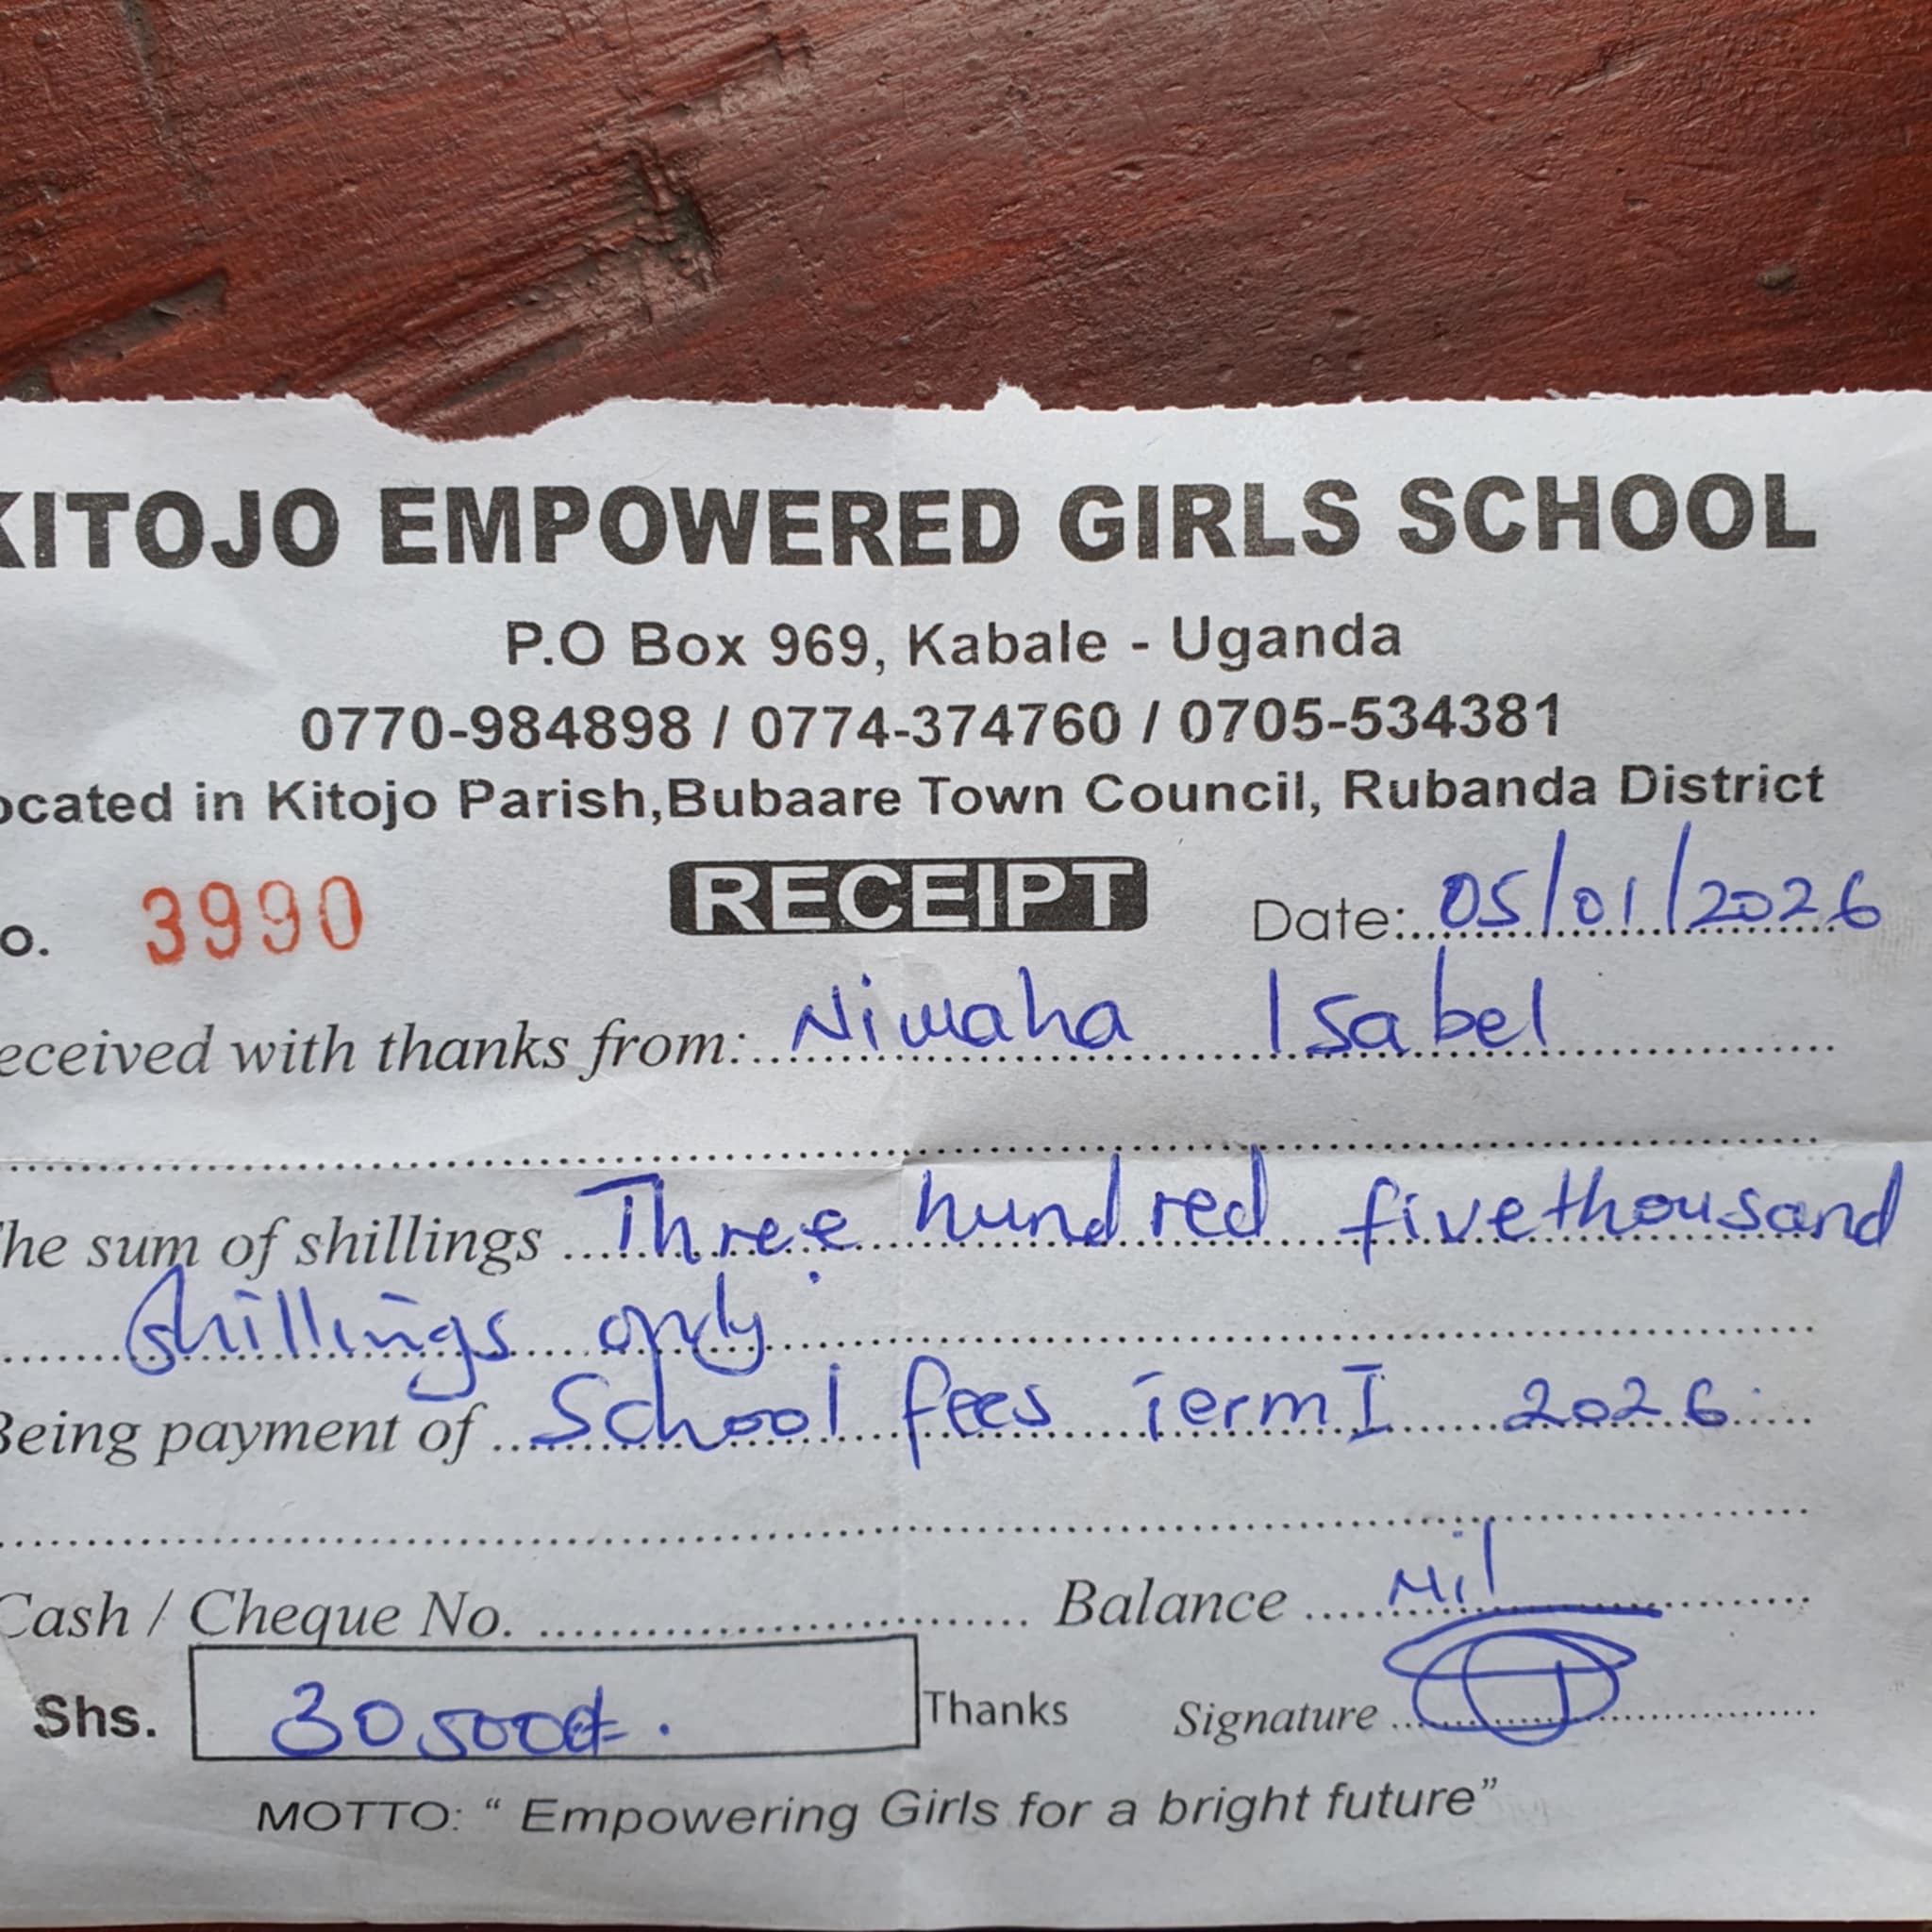 KITOJO EMPOWERED GIRLS SCHOOL
P.O Box 969, Kabale - Uganda
0770-984898 / 0774-374760 / 0705-534381
ocated in Kitojo Parish,Bubaare Town Council, Rubanda District
o. 3990 RECEIPT Date: 05/01/2026
eceived with thanks from: Niwaha Isabel
The sum of shillings Three hundred fivethousand
shillings only
Being payment of School fees Term I 2026
Cash / Cheque No. Balance Nil
Shs. 305000/= Thanks Signature
MOTTO: “ Empowering Girls for a bright future”